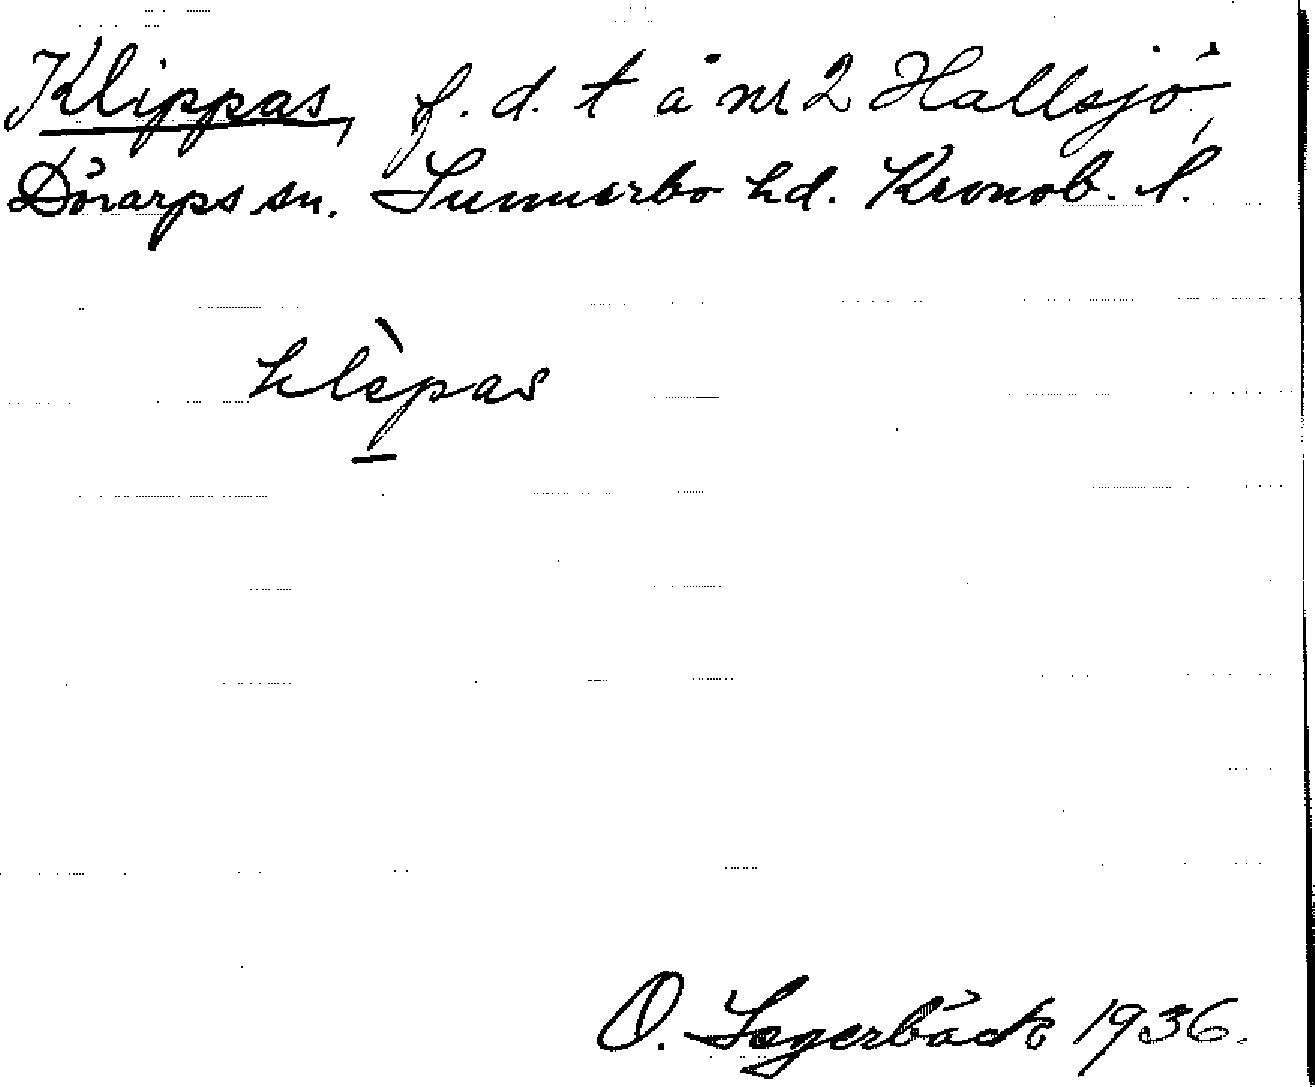 Klippas, f. d. t å nr 2 Hallsjö,
Dörarps sn. Sunnerbo hd. Kronob. l.
klèpas
O. 1936.